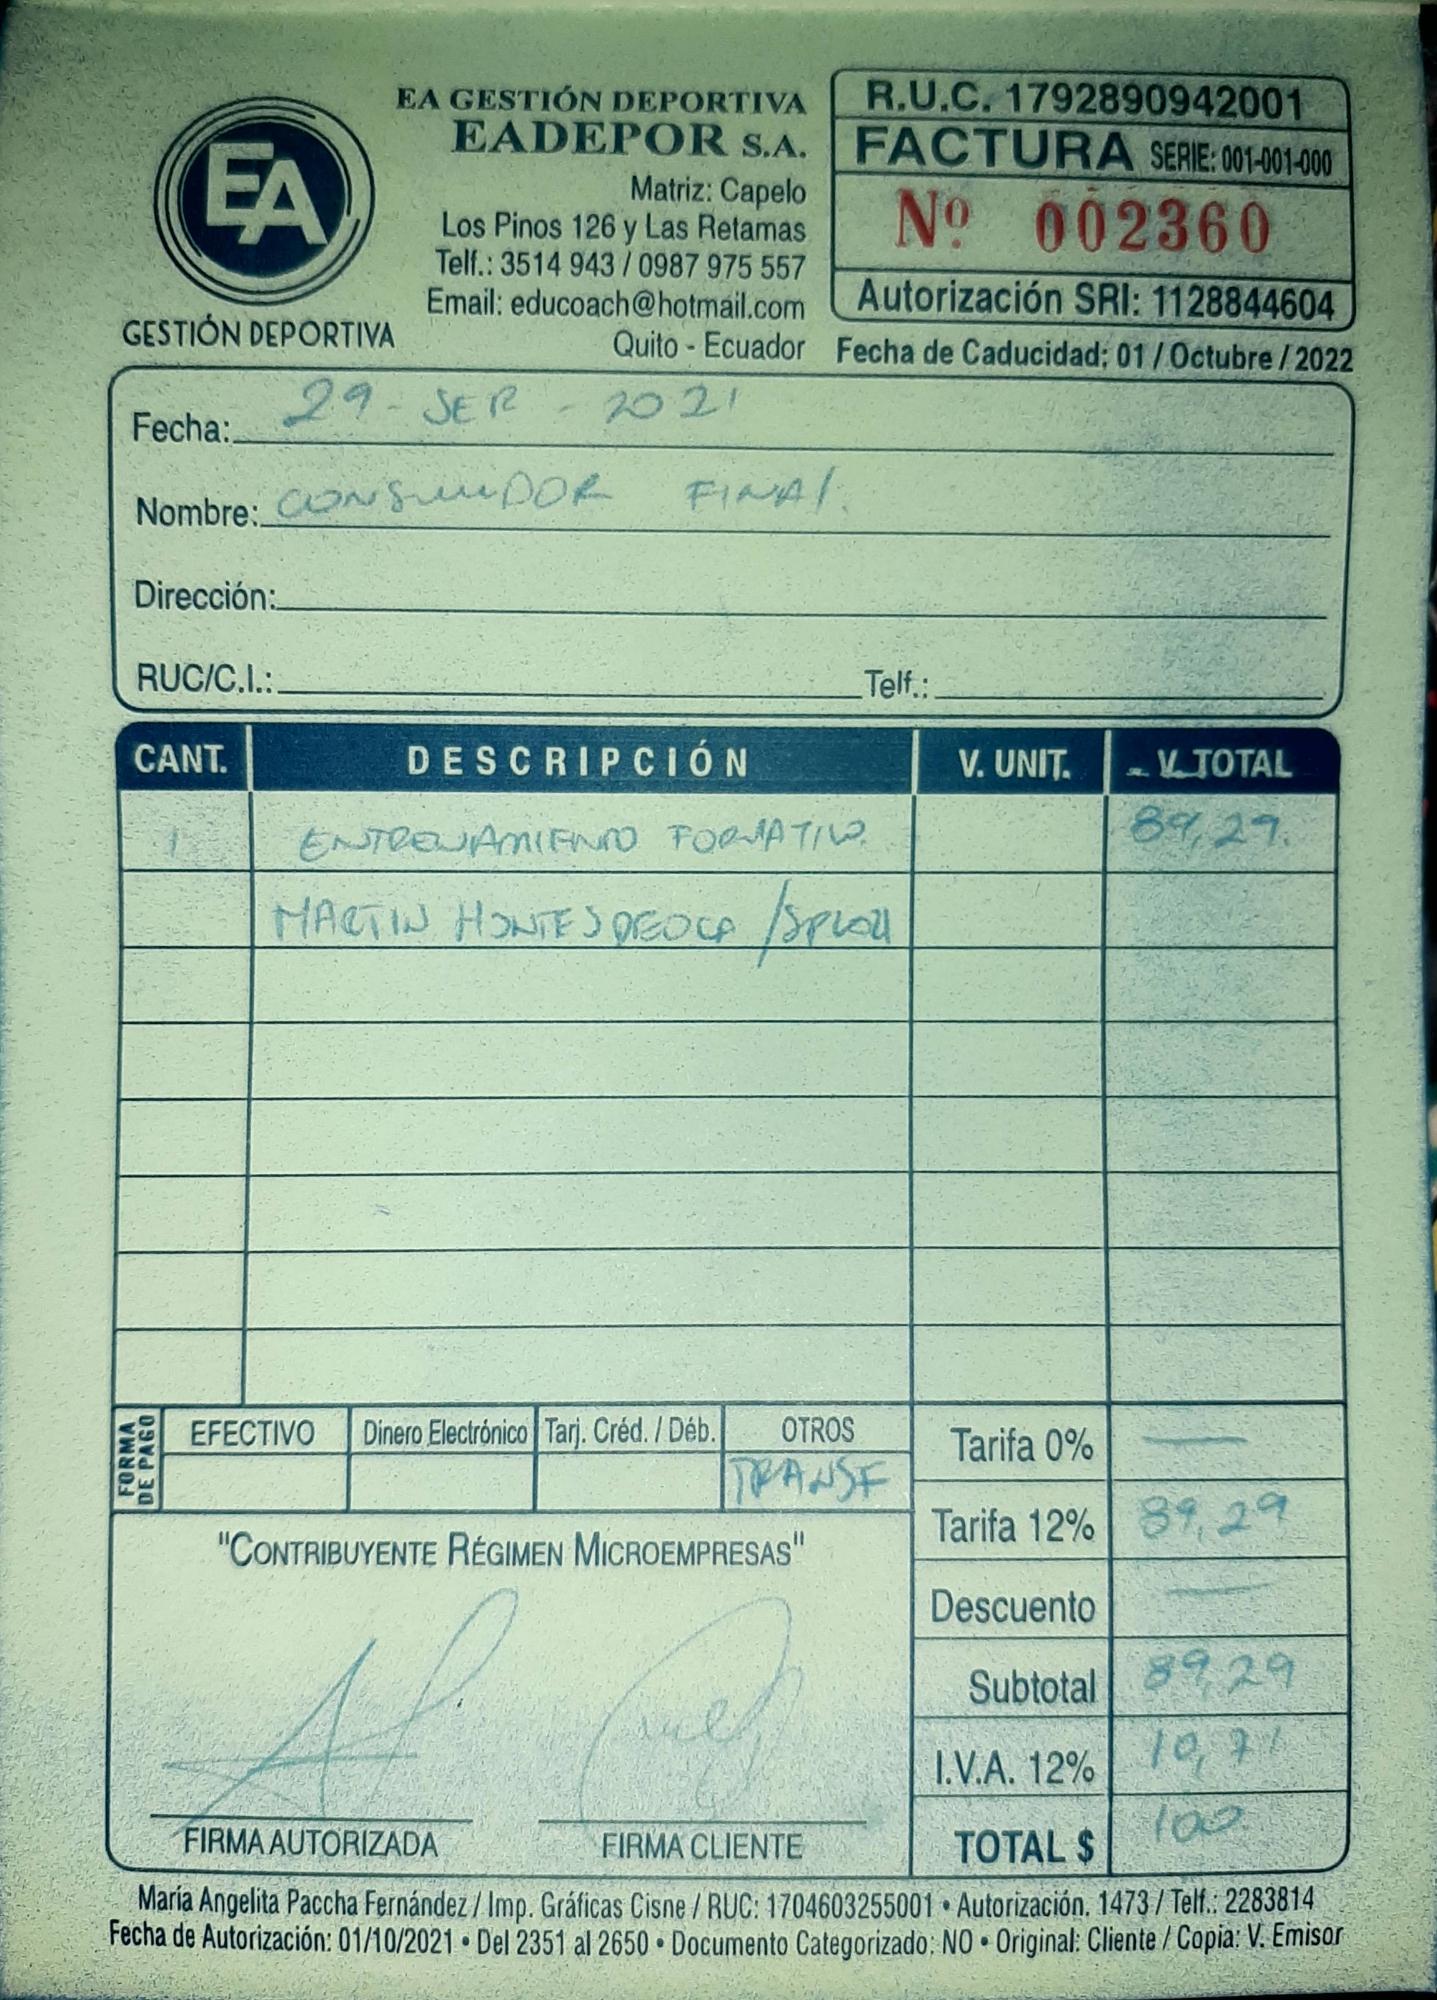 EA
GESTIÓN DEPORTIVA
EA GESTIÓN DEPORTIVA
EADEPOR S.A.
Matriz: Capelo
Los Pinos 126 y Las Retamas
Telf.: 3514 943 / 0987 975 557
Email: educoach@hotmail.com
Quito - Ecuador
R.U.C. 1792890942001
FACTURA SERIE: 001-001-000
Nº 002360
Autorización SRI: 1128844604
Fecha de Caducidad: 01 / Octubre / 2022
Fecha: 29 - SEP - 2021
Nombre: CONSUMIDOR FINAL.
Dirección:
RUC/C.I.: Telf.:
CANT. DESCRIPCIÓN V. UNIT. V. TOTAL
1 ENTRENAMIENTO FORMATIVO 89,29.
MARTIN MONTESDEOCA /
FORMA DE PAGO
EFECTIVO Dinero Electrónico Tarj. Créd. / Déb. OTROS
TRANSF
Tarifa 0% —
Tarifa 12% 89,29
Descuento —
Subtotal 89,29
I.V.A. 12% 10,71
TOTAL $ 100
"CONTRIBUYENTE RÉGIMEN MICROEMPRESAS"
FIRMA AUTORIZADA FIRMA CLIENTE
María Angelita Paccha Fernández / Imp. Gráficas Cisne / RUC: 1704603255001 • Autorización. 1473 / Telf.: 2283814
Fecha de Autorización: 01/10/2021 • Del 2351 al 2650 • Documento Categorizado: NO • Original: Cliente / Copia: V. Emisor